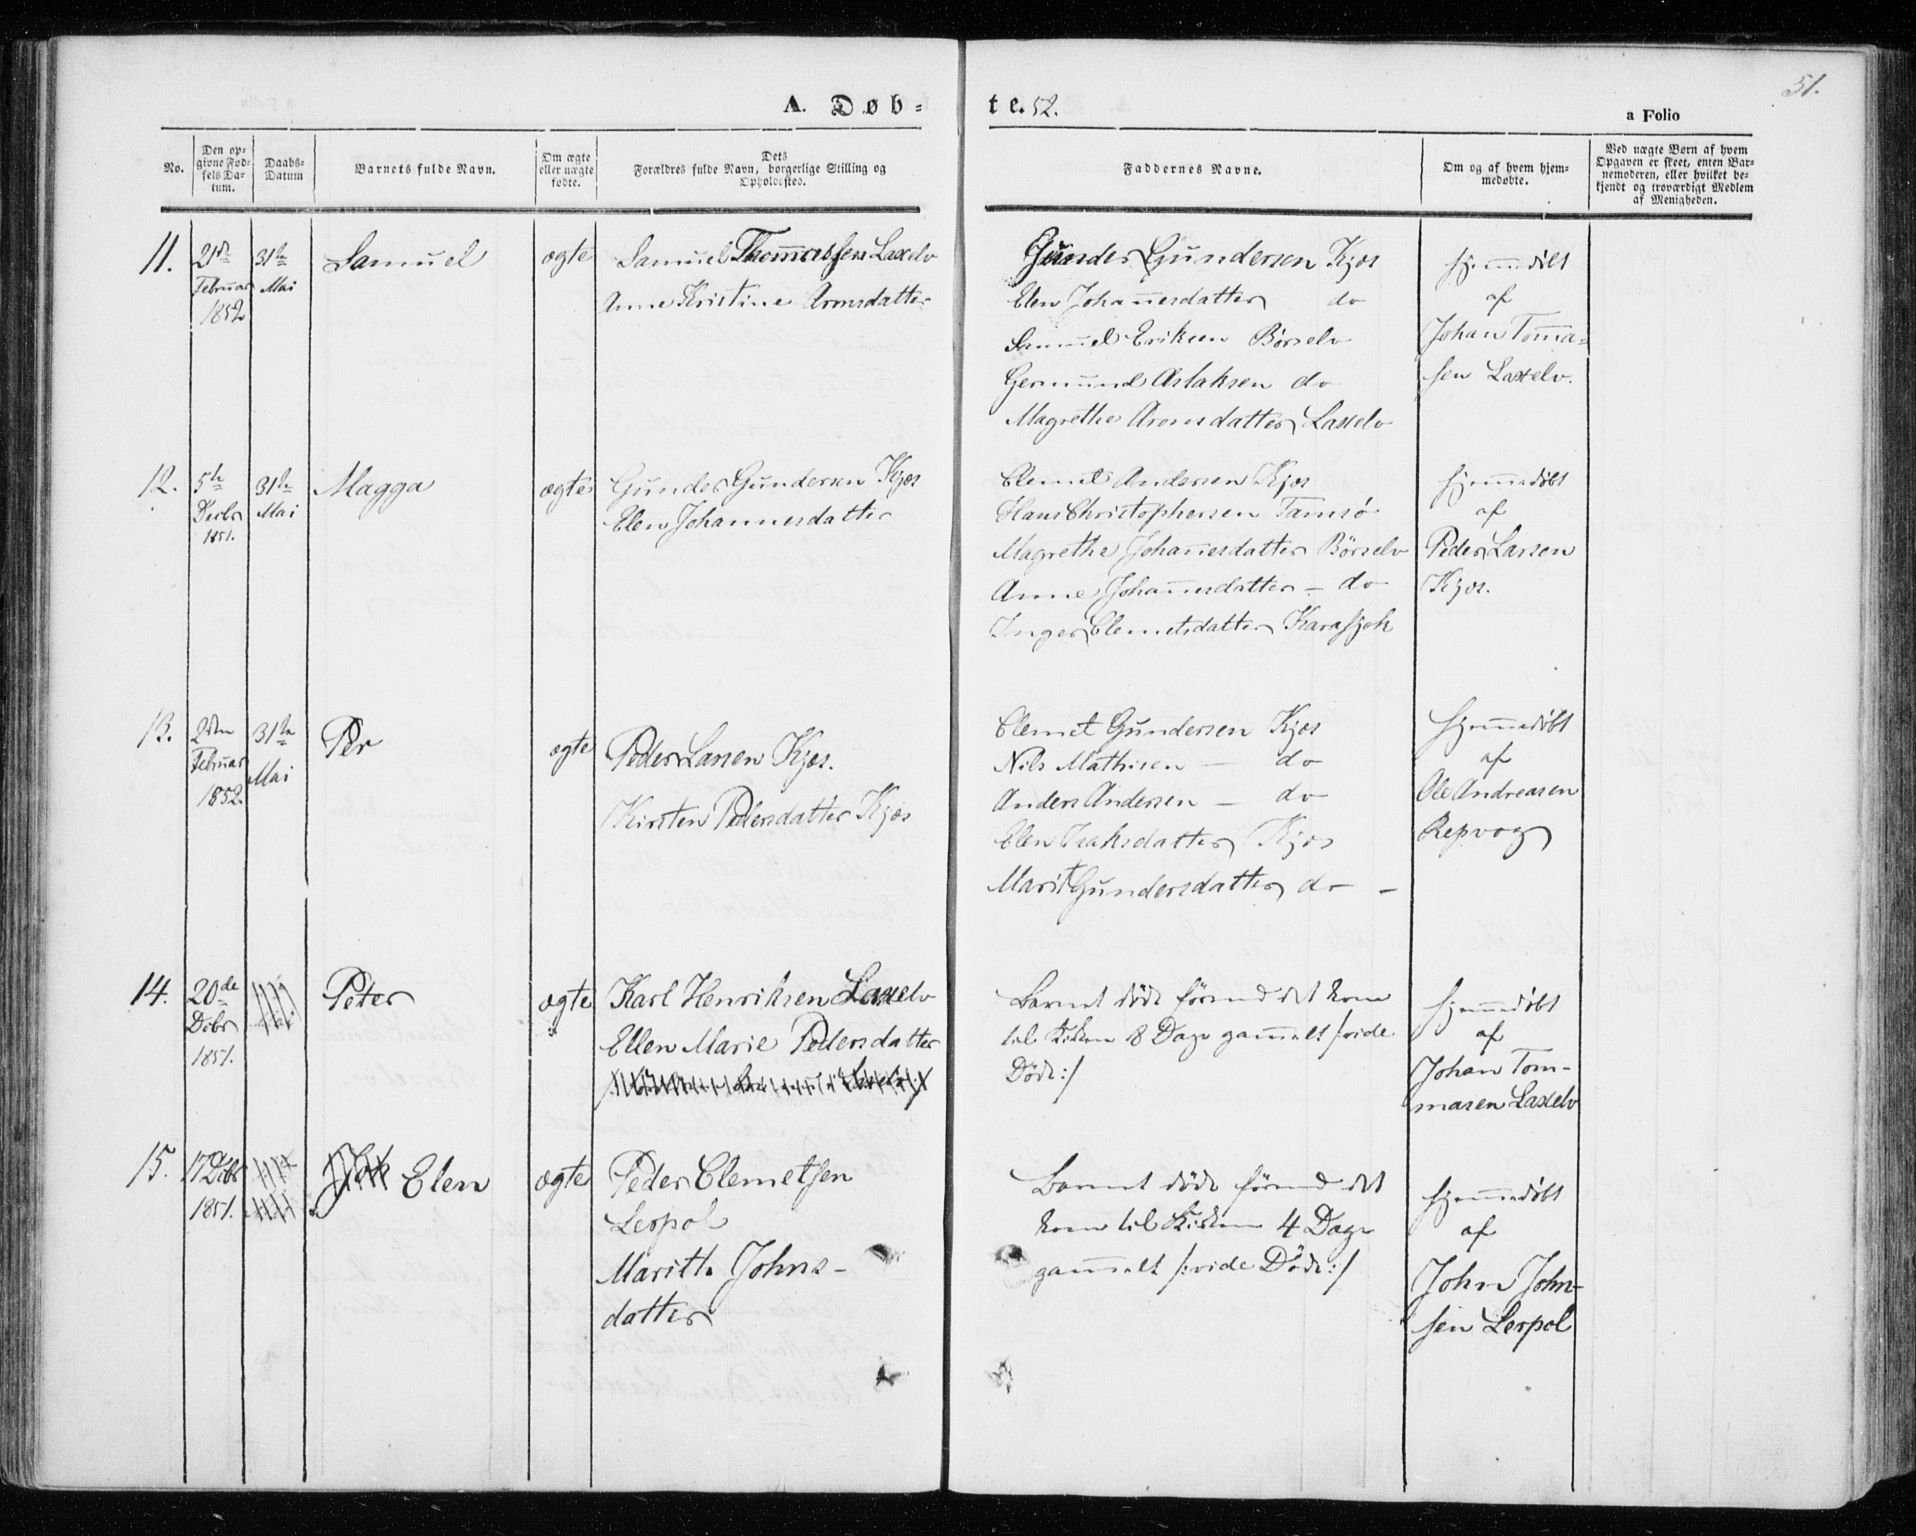 51.
A. Døb-
te. 52.
a Folio
No.
Den op-
givne Fød-
sels Da-
tum.
Daabs-
Datum
Barnets fulde Navn.
Om ægte
eller uægte
fødte.
Dets
Forældres fulde Navn, borgerlige Stilling og
Opholdssted.
Faddernes Navne.
Om og af hvem hjem-
medøbte.
Ved uægte Børn af hvem
Opgaven er skeet, enten Bar-
nemoderen, eller hvilket be-
kjendt og troværdigt Medlem
af Menigheden.
11.
2den
Februar
1852
31te
Mai
Samuel
ægte
Samuel Thomassen Laxelv
Anne Kristine Aronsdatter
Gunder Gundersen Kjæs
Elen Johannesdatter do
Samuel Eriksen Börselv
Germund Aslaksen do
Magrethe Aronsdatter Laxelv
hjemmedöbt
af
Johan Toma-
sen Laxelv.
12.
5te
Decbr
1851.
31te
Mai
Magga
ægte
Gunder Gundersen Kjæs
Elen Johannesdatter
Clemet Andersen Kjæs
Hans Christophersen Tamsö
Magrethe Johannesdatter Börselv
Anne Johannesdatter - do
Inger Clemetsdatter Karasjok
hjemmedöbt
af
Peder Larsen
Kjæs.
13.
2den
Februar
1852.
31te
Mai
Per
ægte
Peder Larsen Kjæs.
Kirsten Pedersdatter Kjæs
Clemet Gundersen Kjæs
Nils Mathisen - do
Anders Andersen - do
Elen Isaksdatter Kjæs
Marit Gundersdatter do -
hjemmedöbt
af
Ole Andreasen
Repvog
14.
20de
Dcbr
1851.
Peter
ægte
Karl Henriksen Laxelv
Ellen Marie Pedersdatter
Barnet döde förend det kom
til Kirken 8 Dage gammelt /:vide
Döde:/
hjemmedöbt
af
Johan Tom-
masen Laxelv
15.
17 Dcbr
1851.
Elen
ægte
Peder Clemetsen
Lerpol
Marith Johns-
datter
Barnet döde förend det
kom til Kirken 4 Dage
gammelt /:vide Döde:/
hjemmedöbt
af
John John-
sen Lerpol